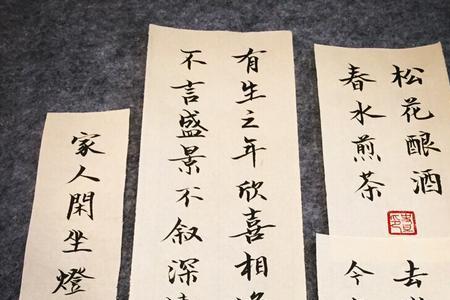 松花酿酒
春水煎茶
去
今
有生之年欣喜相
不言盛景不叙深
家人閑坐燈